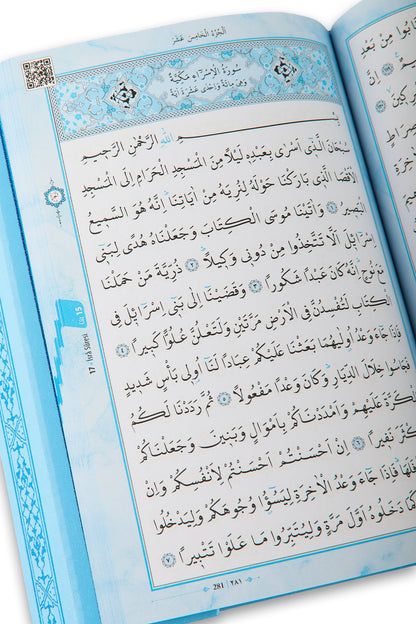 اَلْجُزْءُ الْخَامِسُ عَشَرَ
سُورَةُ الْاِسْرَاءِ مَكِّيَّةٌ
وَهِيَ مِائَةٌ وَاِحْدٰى عَشَرَةَ اٰيَةً
بِسْمِ اللّٰهِ الرَّحْمٰنِ الرَّحِيمِ
سُبْحَانَ الَّذ۪ٓي اَسْرٰى بِعَبْدِه۪ لَيْلًا مِنَ الْمَسْجِدِ الْحَرَامِ اِلَى الْمَسْجِدِ
الْاَقْصَا الَّذ۪ي بَارَكْنَا حَوْلَهُ لِنُرِيَهُ مِنْ اٰيَاتِنَاۜ اِنَّهُ هُوَ السَّم۪يعُ
الْبَص۪يرُ ﴿١﴾ وَاٰتَيْنَا مُوسَى الْكِتَابَ وَجَعَلْنَاهُ هُدًى لِبَن۪ٓي
اِسْرَٓائ۪لَ اَلَّا تَتَّخِذُوا مِنْ دُون۪ي وَك۪يلًاۜ ﴿٢﴾ ذُرِّيَّةَ مَنْ حَمَلْنَا
مَعَ نُوحٍۜ اِنَّهُ كَانَ عَبْدًا شَكُورًا ﴿٣﴾ وَقَضَيْنَٓا اِلٰى بَن۪ٓي اِسْرَٓائ۪لَ فِي
الْكِتَابِ لَتُفْسِدُنَّ فِي الْاَرْضِ مَرَّتَيْنِ وَلَتَعْلُنَّ عُلُوًّا كَب۪يرًا ﴿٤﴾
فَاِذَا جَٓاءَ وَعْدُ اُو۫لٰيهُمَا بَعَثْنَا عَلَيْكُمْ عِبَادًا لَنَٓا اُو۬ل۪ي بَأْسٍ شَد۪يدٍ
فَجَاسُوا خِلَالَ الدِّيَارِۜ وَكَانَ وَعْدًا مَفْعُولًا ﴿٥﴾ ثُمَّ رَدَدْنَا لَكُمُ
الْكَرَّةَ عَلَيْهِمْ وَاَمْدَدْنَاكُمْ بِاَمْوَالٍ وَبَن۪ينَ وَجَعَلْنَاكُمْ
اَكْثَرَ نَف۪يرًا ﴿٦﴾ اِنْ اَحْسَنْتُمْ اَحْسَنْتُمْ لِاَنْفُسِكُمْ وَاِنْ
فَلَهَاۜ فَاِذَا جَٓاءَ وَعْدُ الْاٰخِرَةِ لِيَسُٓوؤُ۫ا وُجُوهَكُمْ وَلِيَدْخُلُوا
دَخَلُوهُ اَوَّلَ مَرَّةٍ وَلِيُتَبِّرُوا مَا عَلَوْا تَتْب۪يرًا ﴿٧﴾
281 | ٢٨١
Cüz 15
17 - İsrâ Sûresi